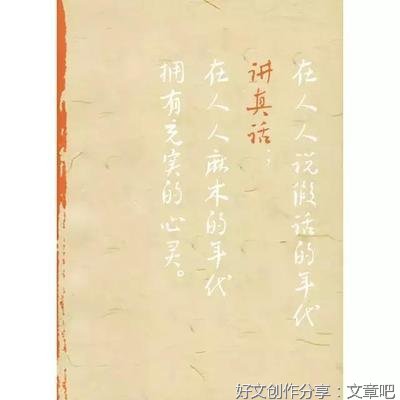 在人人说假话的年代
讲真话；
在人人麻木的年代
拥有充实的心灵。
好文创作分享：文章吧